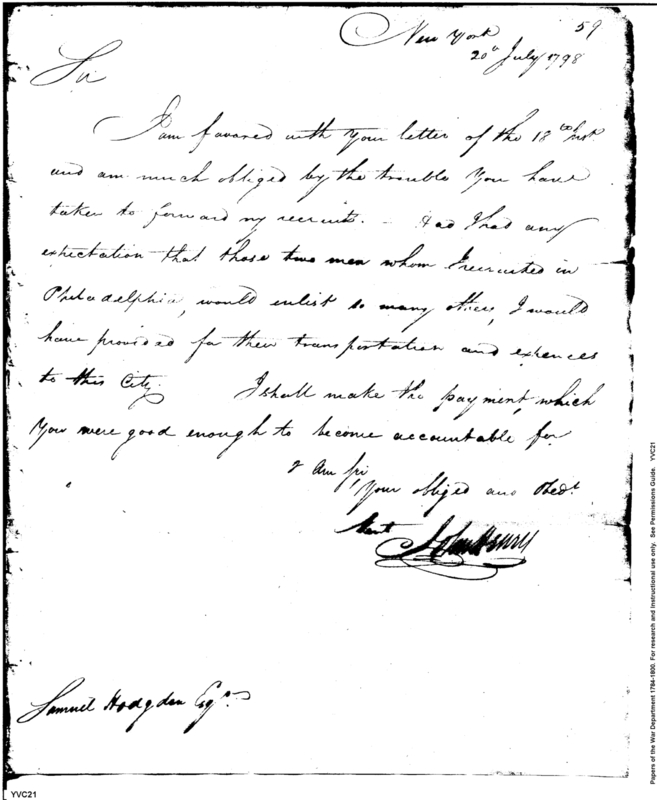 59
New York
20th July 1798
Sir
I am favored with your letter of the 18th Inst
and am much obliged by the trouble You have
taken to forward my recruits. – Had I had any
expectation that those two men whom I recruited in
Philadelphia, would enlist so many others, I would
have provided for their transportation and expences
to this City. I shall make the payment, which
You were good enough to become accountable for
I Am Sir
Your obliged and Obedt
Servt
John Henry
Samuel Hodgdon Esqr.
YVC21
Papers of the War Department 1784-1800. For research and instructional use only. See Permissions Guide. YVC21